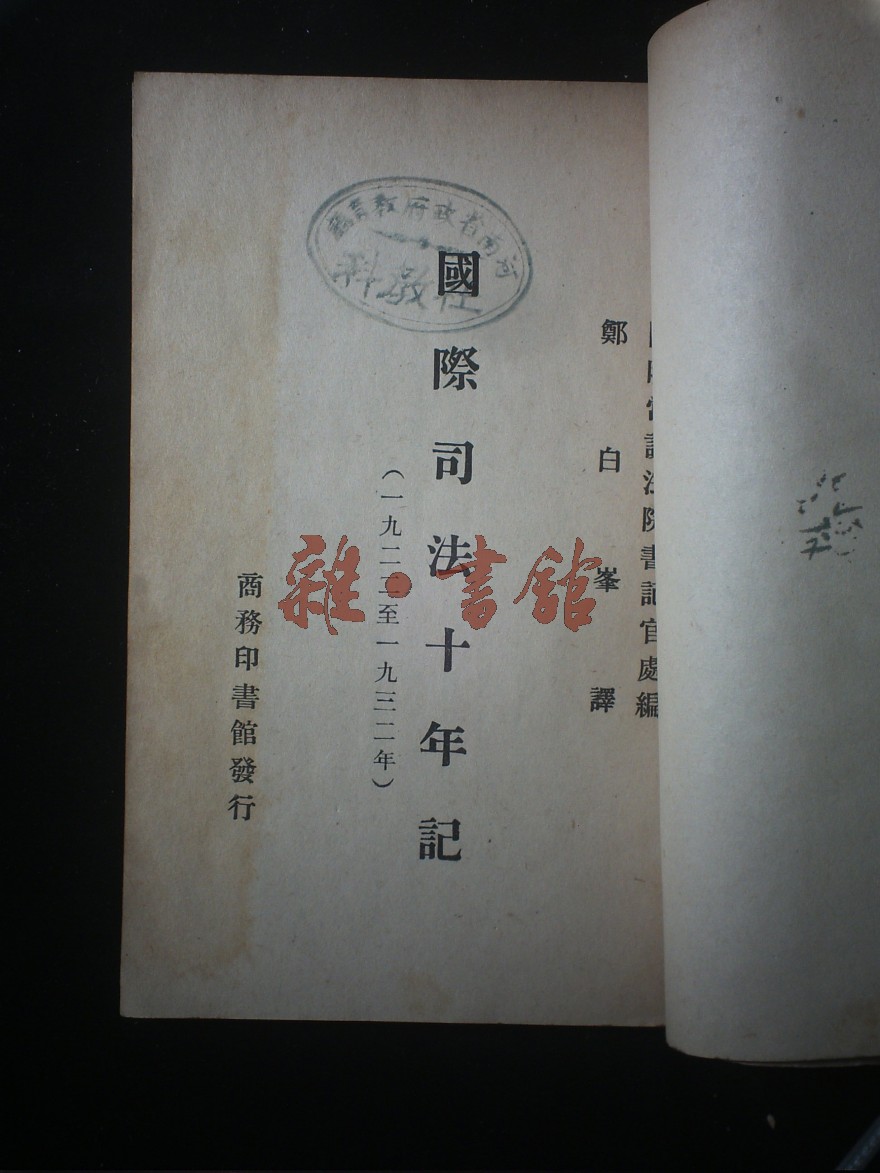 國際常設法院書記官處編
鄭白峯譯
國際司法十年記
（一九二二至一九三二年）
商務印書館發行
河南省政府教育廳
社教科
雜·書館